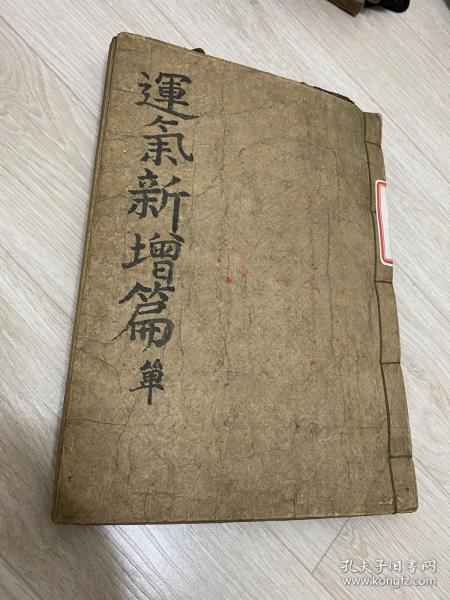 運氣新增篇
單
孔夫子旧书网
www.kongfz.com